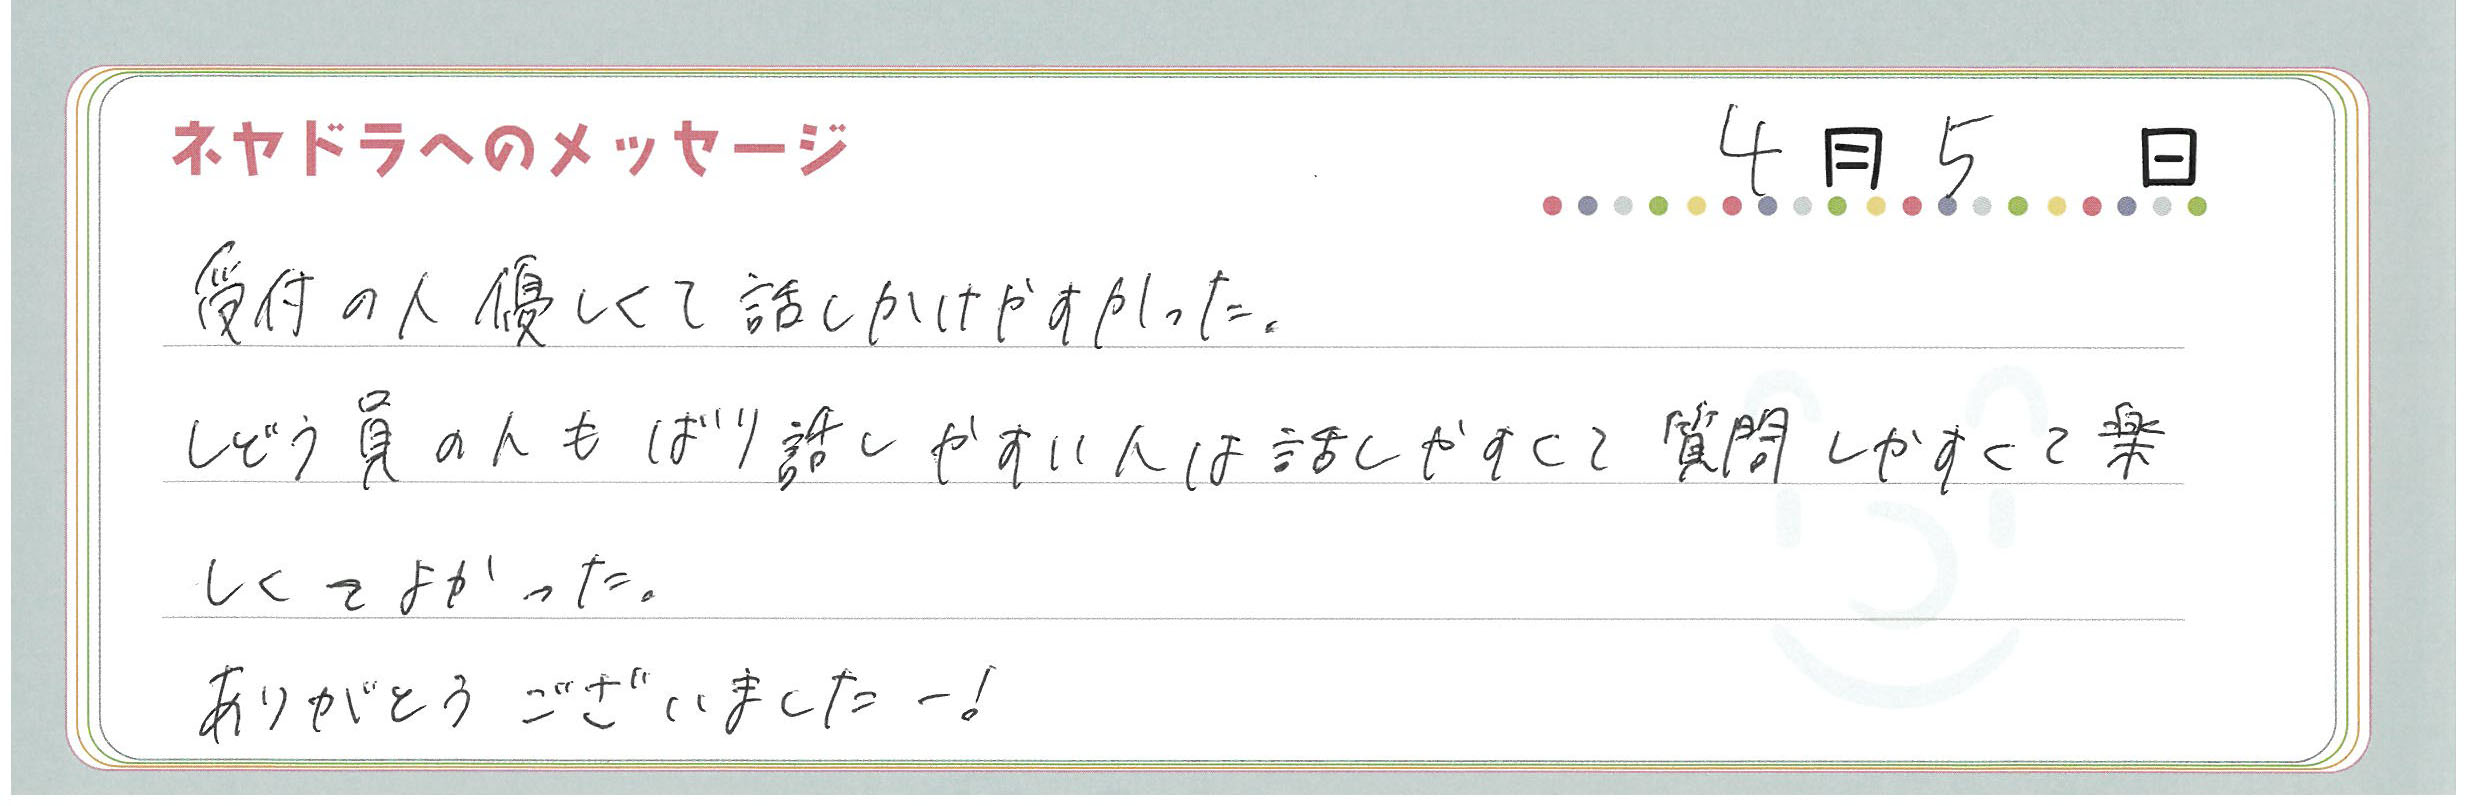 ネヤドラへのメッセージ
4月5日
受付の人優しくて話しかけやすかった。
しどう員の人もばり話しやすい人は話しやすくて質問しやすくて楽
しくてよかった。
ありがとうございましたー!